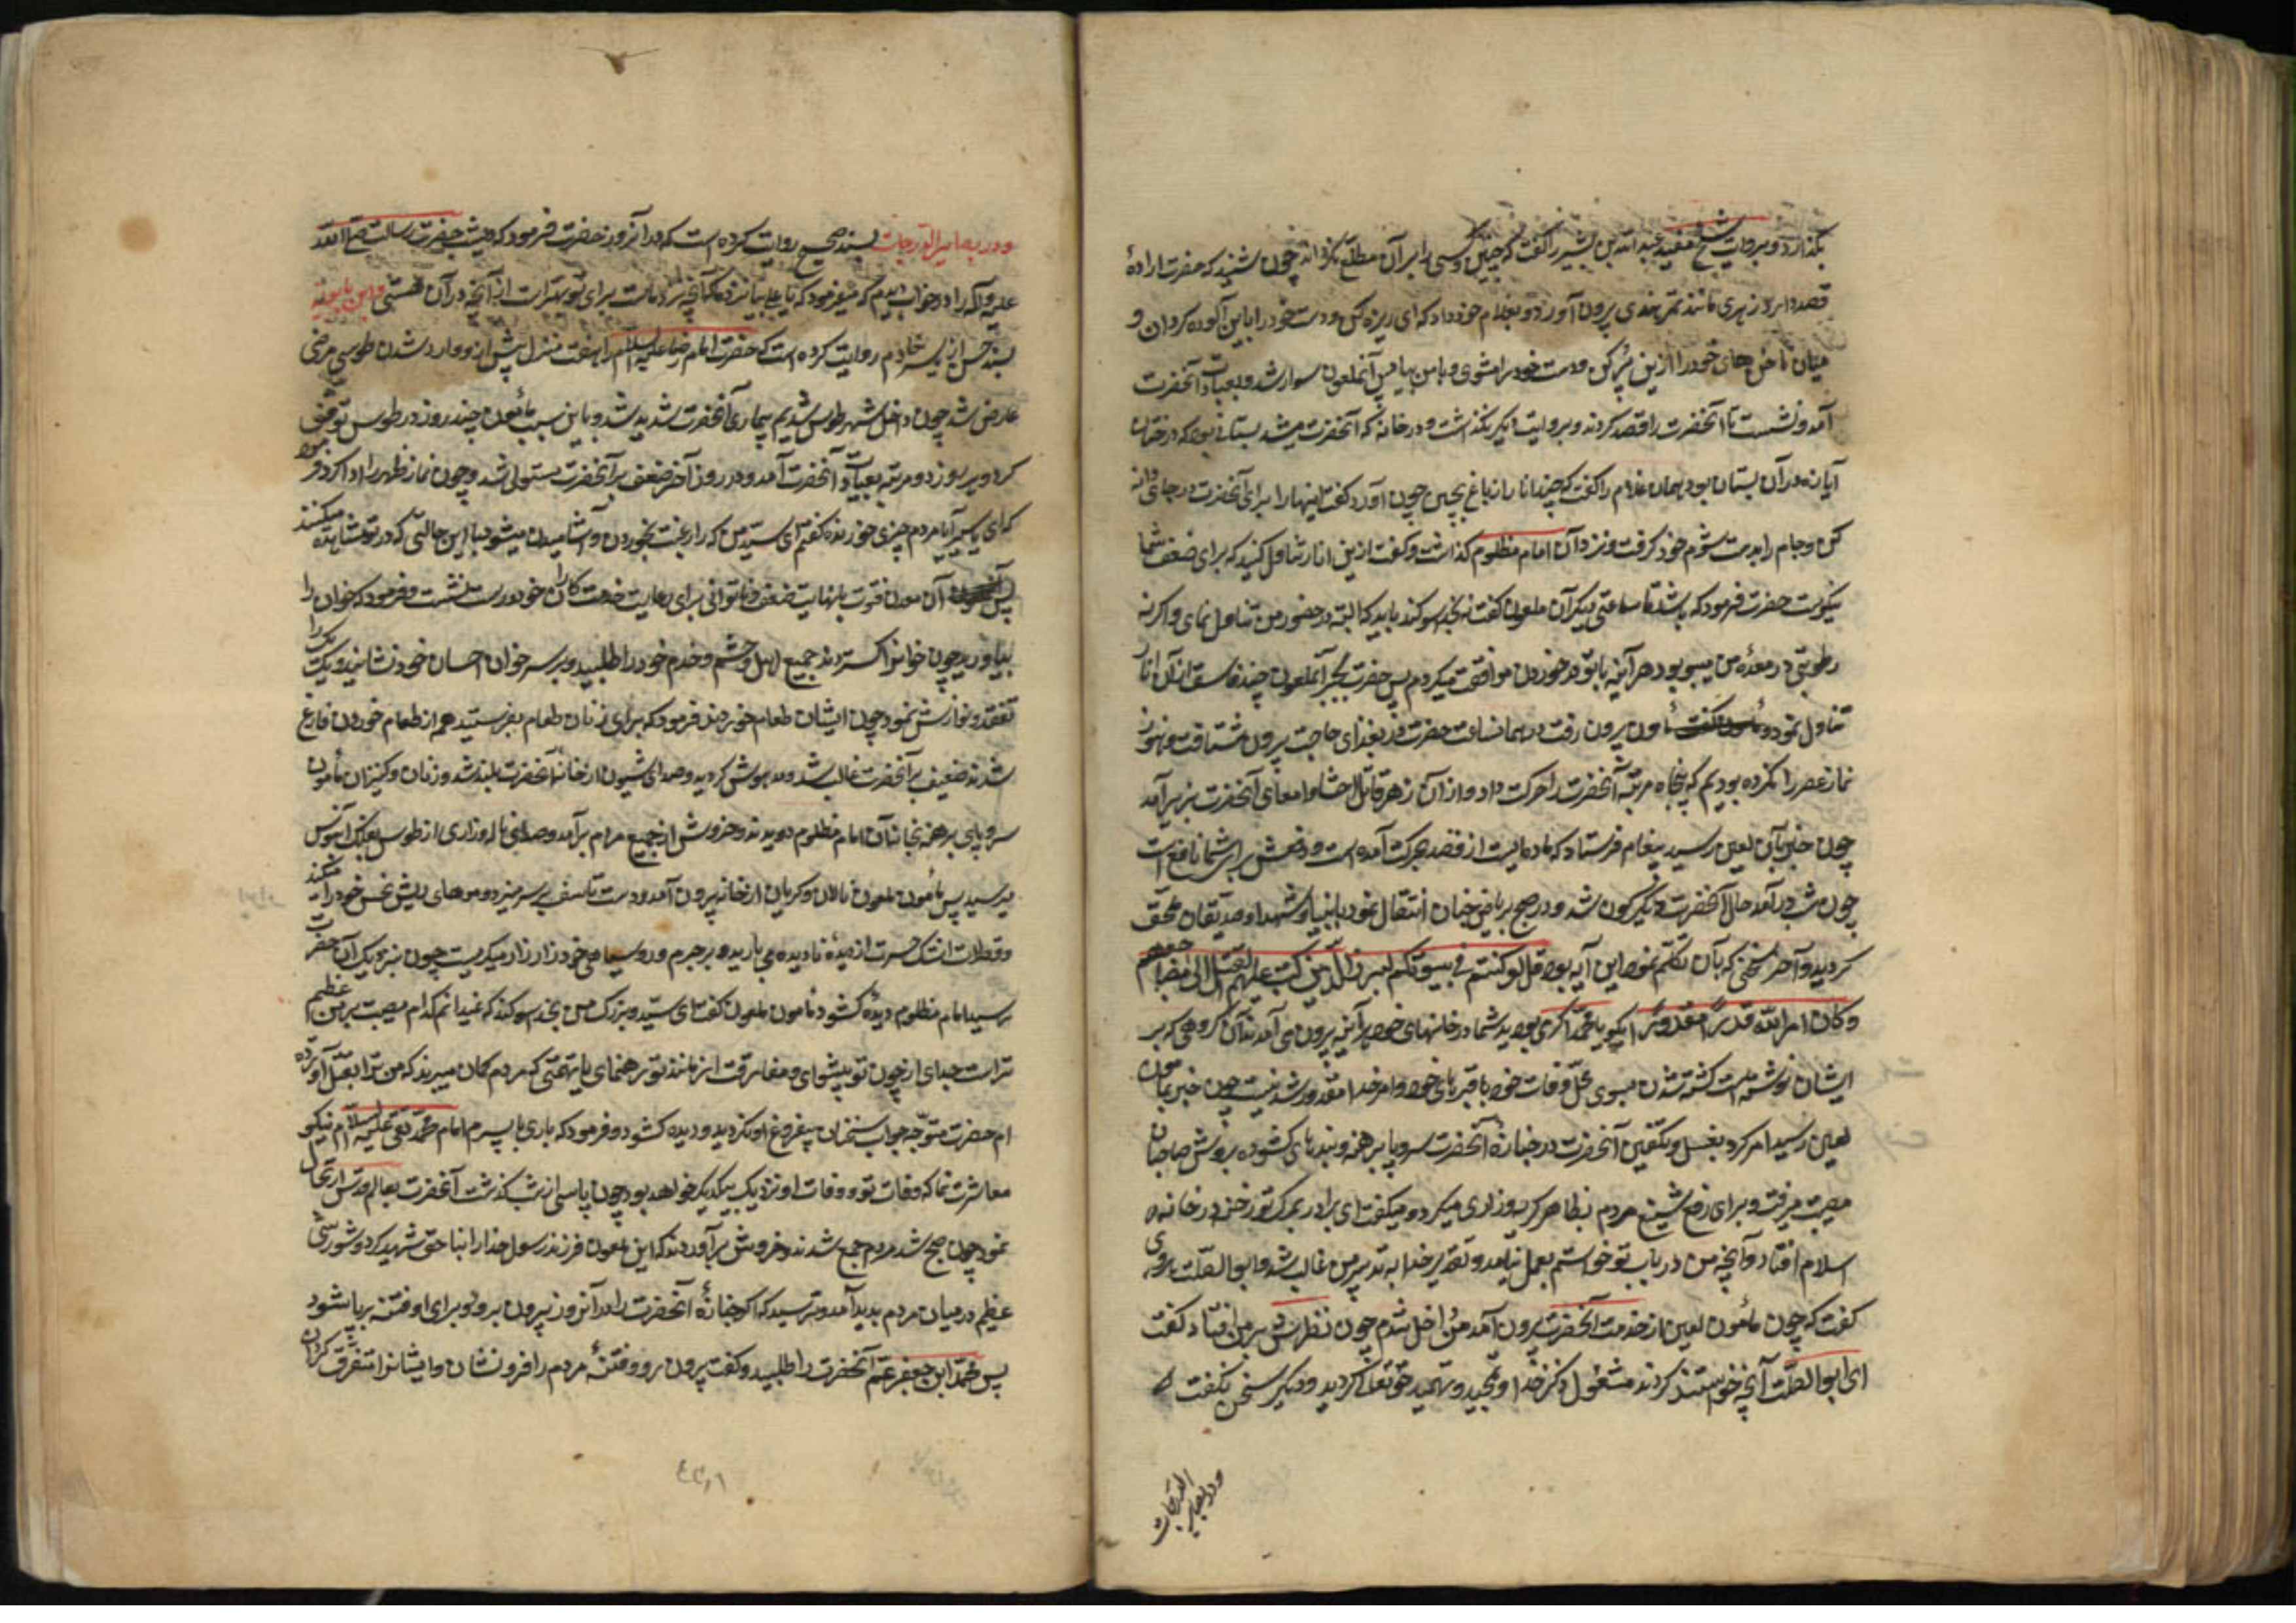 بگذارد و بروایت شیخ مفید عبد الله بن بشیر را گفت که چنین و کسی را بر آن مطلع نگردان چون شنید که حضرت اراده
قصد دارد زهری مانند تمر هندی بیرون آورد و بغلام خود داد که ای ریزه کن و دست خود را باین آلوده گردان و
میان ناخن های خود را ازین پر کن و دست خود را مشوی و با من بیا پس آنملعون سوار شد و بعیادت آنحضرت
آمد و نشست تا آنحضرت را فصد کردند و بروایت دیگر نگذاشت و در خانه که آنحضرت میشد بستانی بود که درختان
انار در آن بستان بود همان غلام را گفت که چند انار از باغ بچین چون آورد گفت اینها را برای آنحضرت در جامی دانه
کن و جام را بدست شوم خود گرفت و نزد آن امام مظلوم گذاشت و گفت ازین انار تناول کنید که برای ضعف شما
نیکوست حضرت فرمود که باشد تا ساعتی دیگر آن ملعون گفت نه بخدا سوگند باید که البته در حضور من تناول نمای و اگر نه
رطوبتی در معده من میبود هر آینه با تو در خوردن موافقت میکردم پس حضرت بجبر آنملعون چند قاشق از آن انار
تناول نمود و مأمون بیرون رفت در همان ساعت حضرت بیرون شتافت و هنوز
نماز عصر را نکرده بودیم که پنجاه مرتبه آنحضرت را حرکت داد و از آن زهر قاتل احشا و امعای آنحضرت بزیر آمد
چون خبر بآن لعین رسید پیغام فرستاد که ماده ایست از فصد بحرکت آمده است و دفعش برای شما نافع است
چون شب در آمد حال آنحضرت دیگرگون شد و در صبح بریاض جنان انتقال نمود بانبیا و شهدا و صدیقان ملحق
گردید و آخر سخنی که بآن تکلم نمود این آیه بود قل لو کنتم فی بیوتکم لبرز الذین کتب علیهم القتل الی مضاجعهم
و کان امر الله قدرا مقدورا بگو یا محمد اگر می بودید شما در خانهای خود هر آینه بیرون می آمدند آن گروهی که بر
ایشان نوشته شده است کشته شدن بسوی محل وفات خود یا قبرهای خود و امر خدا مقدور شدنیست چون خبر بمأمون
لعین رسید امر کرد بغسل و تکفین آنحضرت و در جنازه آنحضرت سر و پا برهنه و بندهای گشوده بروش صاحبان
مصیبت میرفت و برای رفع تشنیع مردم بظاهر گریه و زاری میکرد و میگفت ای برادر بمرگ تو رخنه در خانه
اسلام افتاد و آنچه من در باب تو خواستم بعمل نیامد و تقدیر خدا بر تدبیر من غالب شد و ابو الصلت هروی
گفت که چون مأمون لعین از خدمت آنحضرت بیرون آمد من داخل شدم چون نظرش بر من افتاد گفت
ای ابو الصلت آنچه خواستند کردند و مشغول ذکر خدا و تمجید و تحمید حق تعالی گردید و دیگر سخن نگفت
ودر بصایر الدرجات
ودر بصایر الدرجات بسند صحیح روایت کرده است که در آنروز حضرت فرمود که دیشب حضرت رسالت صلی الله
علیه و آله را در خواب دیدم که میفرمود که یا علی بیا نزد ما که آنچه نزد ماست برای تو بهتر است از آنچه در آن هستی و ابن بابویه
بسند حسن از یاسر خادم روایت کرده است که حضرت امام رضا علیه السلام را هفت منزل پیش از وارد شدن طوس مرضی
عارض شد چون داخل شهر طوس شدیم بیماری آنحضرت شدید شد و باین سبب مأمون چند روز در طوس توقف
کرد و هر روز دو مرتبه بعیادت آنحضرت آمد و در روز آخر ضعف بر آنحضرت مستولی شد و چون نماز ظهر را ادا کرد فرمود
که ای یاسر آیا مردم چیزی خوردند گفتم ای سید من که را رغبت بخوردن و آشامیدن میشود با این حالتی که در تو مشاهده میکنند
پس آن معدن فتوت با نهایت ضعف و ناتوانی برای رعایت خدمتکاران خود درست نشست و فرمود که خوان را
بیاورید چون خوانرا گستردند جمیع اهل و حشم و خدم خود را طلبید و بر سر خوان احسان خود نشانید و یک یک را
تفقد و نوازش نمود چون ایشان طعام خوردند فرمود که برای زنان طعام بفرستید همه از طعام خوردن فارغ
شدند ضعف بر آنحضرت غالب شد و مدهوش گردید و صدای شیون از خانه آنحضرت بلند شد و زنان و کنیزان مأمون
سر و پای برهنه بخانه آن امام مظلوم دویدند و خروش از جمیع مردم برآمد و صدای ناله و زاری از طوس بفلک آبنوس
میرسید پس مأمون ملعون نالان و گریان از خانه بیرون آمد و دست تأسف بر سر میزد و موهای ریش نحس خود را میکند
و قطرات اشک حسرت از دیده نادیده می بارید و بر جرم و روسیاهی خود زار زار میگریست چون بنزدیک آن حضرت
رسید امام مظلوم دیده گشود مأمون ملعون گفت ای سید و بزرگ من بخدا سوگند که نمیدانم کدام مصیبت بر من عظیم
تر است جدای از چون تو پیشوای و مفارقت از مانند تو رهنمای یا تهمتی که مردم گمان میبرند که من ترا بقتل آورده
ام حضرت متوجه جواب سخنان بیفروغ او نگردید و دیده گشود و فرمود که باری با پسرم امام محمد تقی علیه السلام نیکو
معاشرت نما که وفات تو و وفات او نزدیک بیکدیگر خواهد بود چون پاسی از شب گذشت آنحضرت بعالم قدس ارتحال
نمود چون صبح شد مردم جمع شدند و خروش برآوردند که این ملعون فرزند رسول خدا را بناحق شهید کرد و شورشی
عظیم در میان مردم پدید آمد و ترسید که اگر جنازه آنحضرت را در آنروز بیرون برد برای او فتنه برپا شود
پس محمد ابن جعفر عم آنحضرت را طلبید و گفت بیرون رو و فتنه مردم را فرو نشان و ایشانرا متفرق گردان